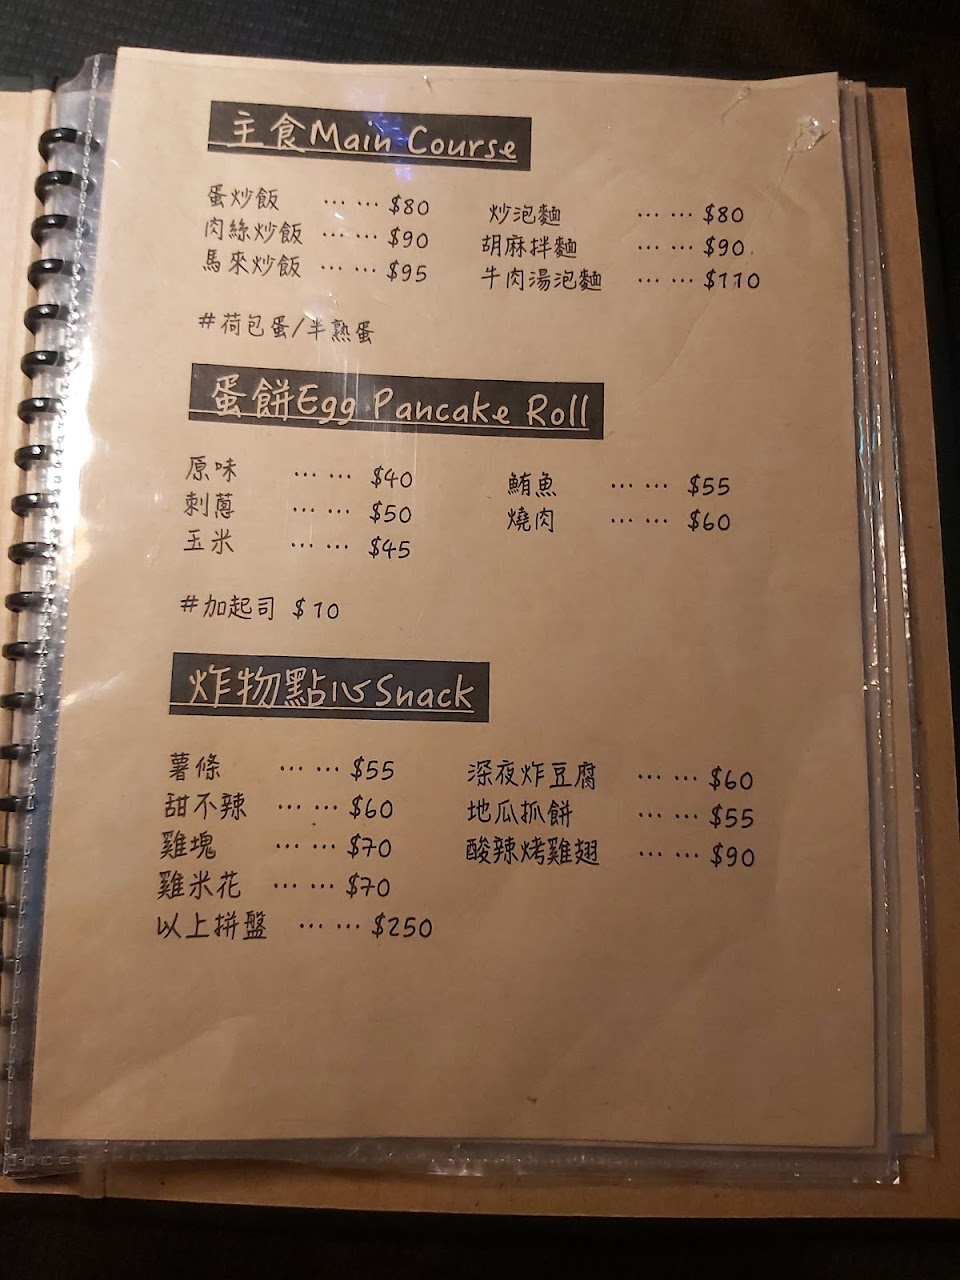 主食Main Course
蛋炒飯 ... ... $80
肉絲炒飯 ... ... $90
馬來炒飯 ... ... $95
炒泡麵 ... ... $80
胡麻拌麵 ... ... $90
牛肉湯泡麵 ... ... $110
#荷包蛋/半熟蛋
蛋餅Egg Pancake Roll
原味 ... ... $40
刺蔥 ... ... $50
玉米 ... ... $45
鮪魚 ... ... $55
燒肉 ... ... $60
#加起司 $10
炸物點心Snack
薯條 ... ... $55
甜不辣 ... ... $60
雞塊 ... ... $70
雞米花 ... ... $70
以上拼盤 ... ... $250
深夜炸豆腐 ... ... $60
地瓜抓餅 ... ... $55
酸辣烤雞翅 ... ... $90